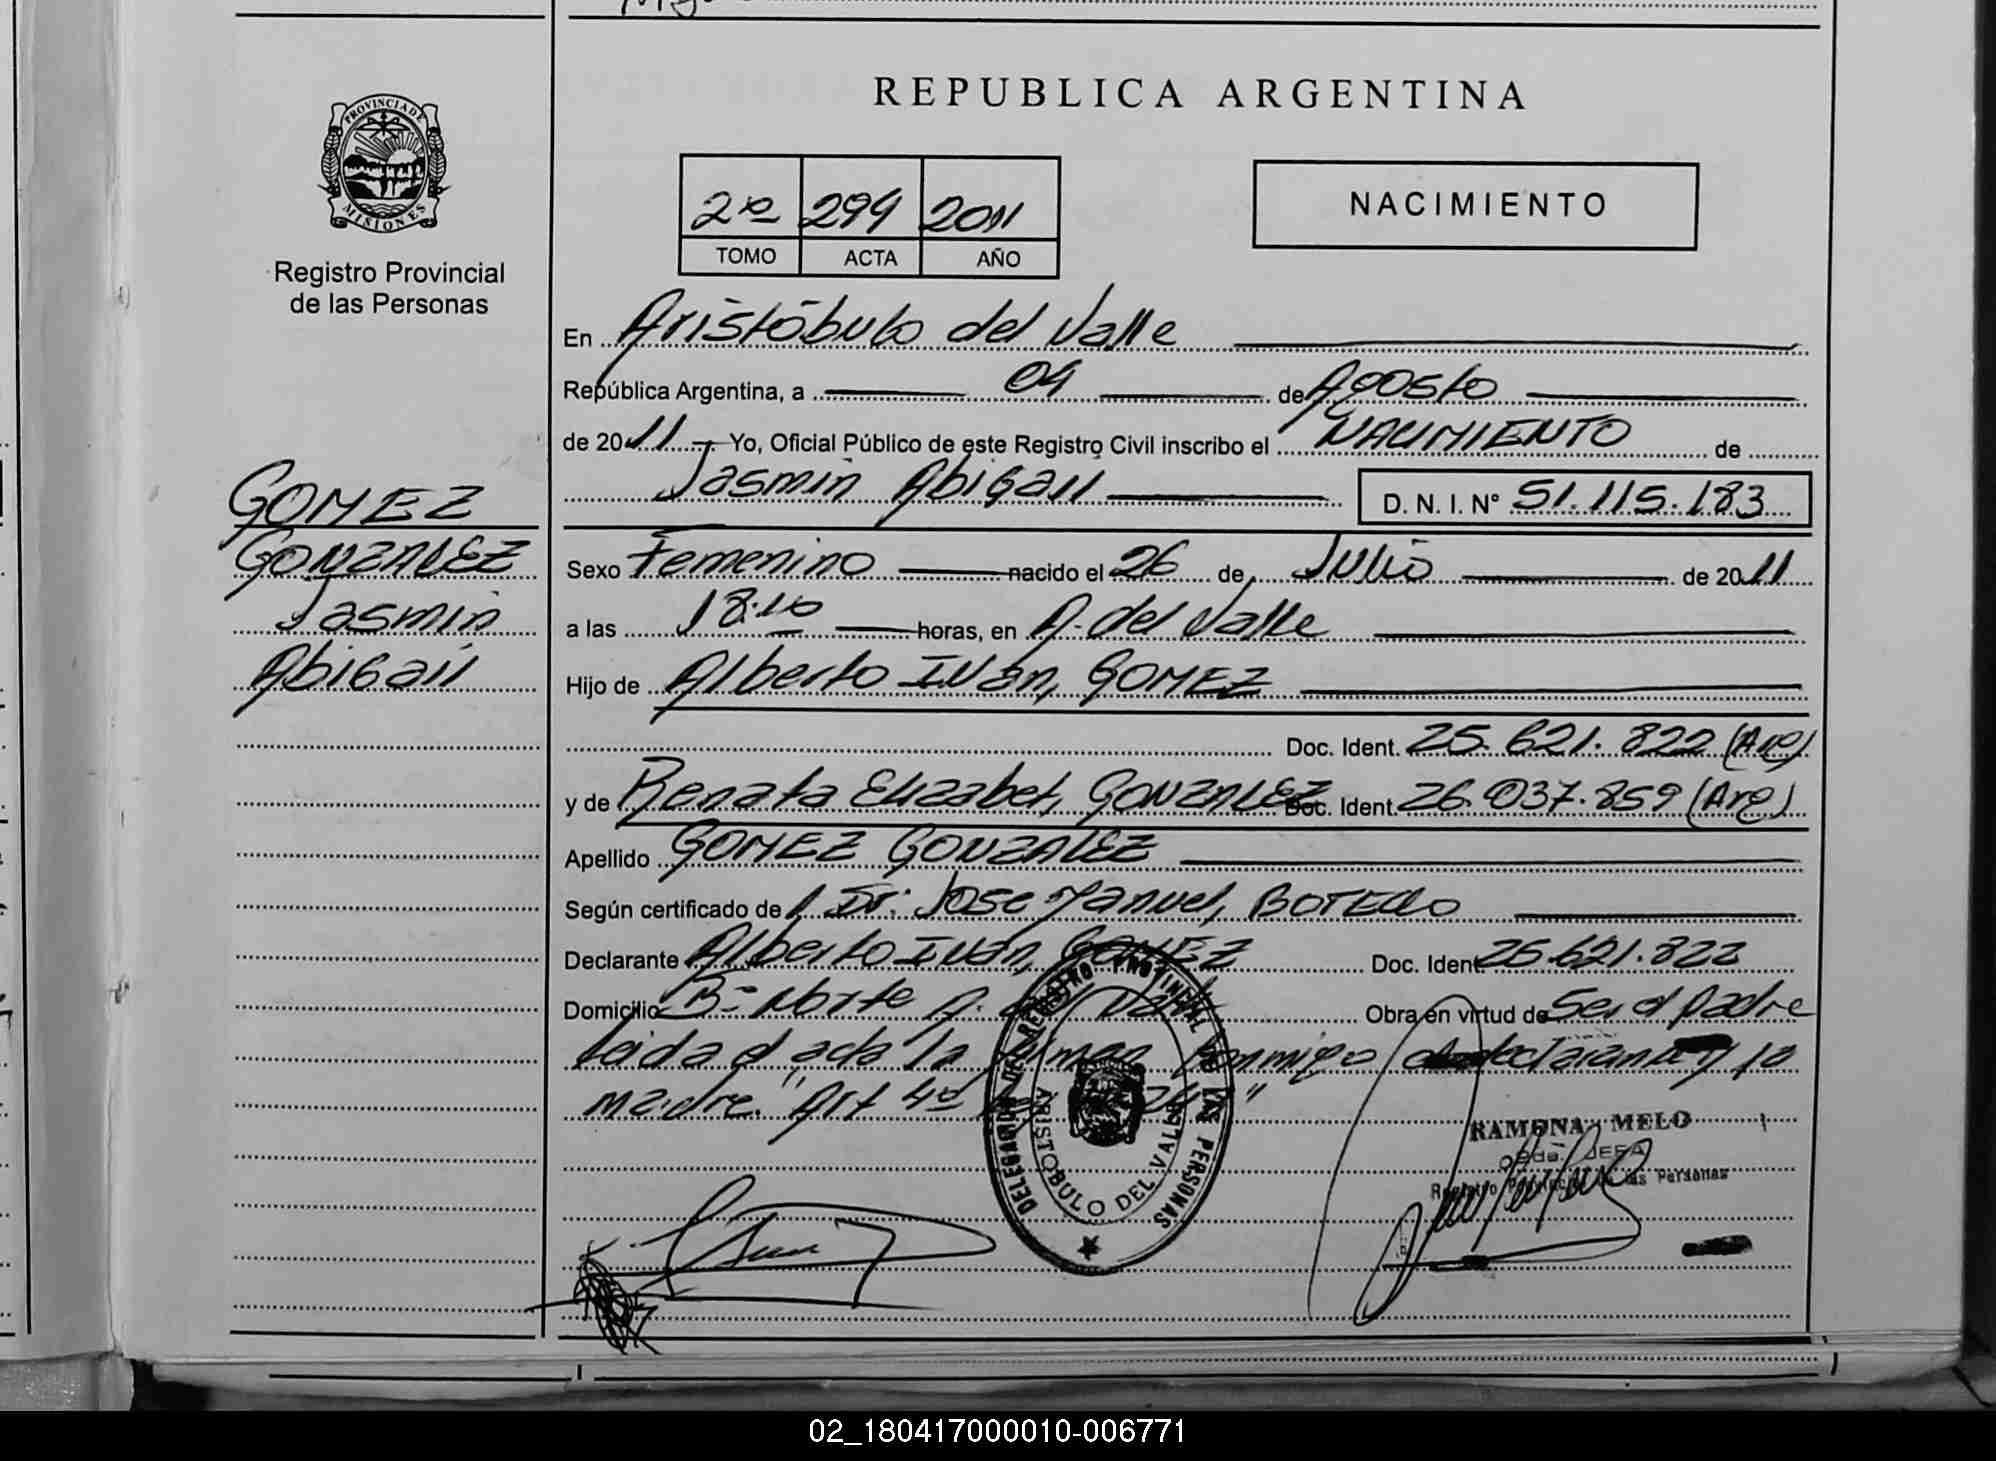 REPUBLICA ARGENTINA
PROVINCIA DE
MISIONES
Registro Provincial
de las Personas
2º 299 2011
TOMO ACTA AÑO
NACIMIENTO
En Aristóbulo del Valle
República Argentina, a 04 de Agosto
de 2011 Yo, Oficial Público de este Registro Civil inscribo el NACIMIENTO de
Jasmin Abigail D. N. I. Nº 51.115.183
GOMEZ
GONZALEZ
Jasmin
Abigail
Sexo Femenino nacido el 26 de Julio de 2011
a las 18:10 horas, en A. del Valle
Hijo de Alberto Iván, GOMEZ
Doc. Ident. 25.621.822 (Arg)
y de Renata Elizabet, GONZALEZ Doc. Ident. 26.037.859 (Arg)
Apellido GOMEZ GONZALEZ
Según certificado de Dr. Jose Manuel, BOTELLO
Declarante Alberto Iván, GOMEZ Doc. Ident 25.621.822
Domicilio Bº Norte A. del Valle Obra en virtud de Ser el padre
Leida el acta la firman conmigo declarante y la
madre. "Art 4º
DELEGACION DEL REGISTRO PROVINCIAL DE LAS PERSONAS
ARISTOBULO DEL VALLE
RAMONA MELO
JEFA
Registro Provincial de las Personas
02_180417000010-006771